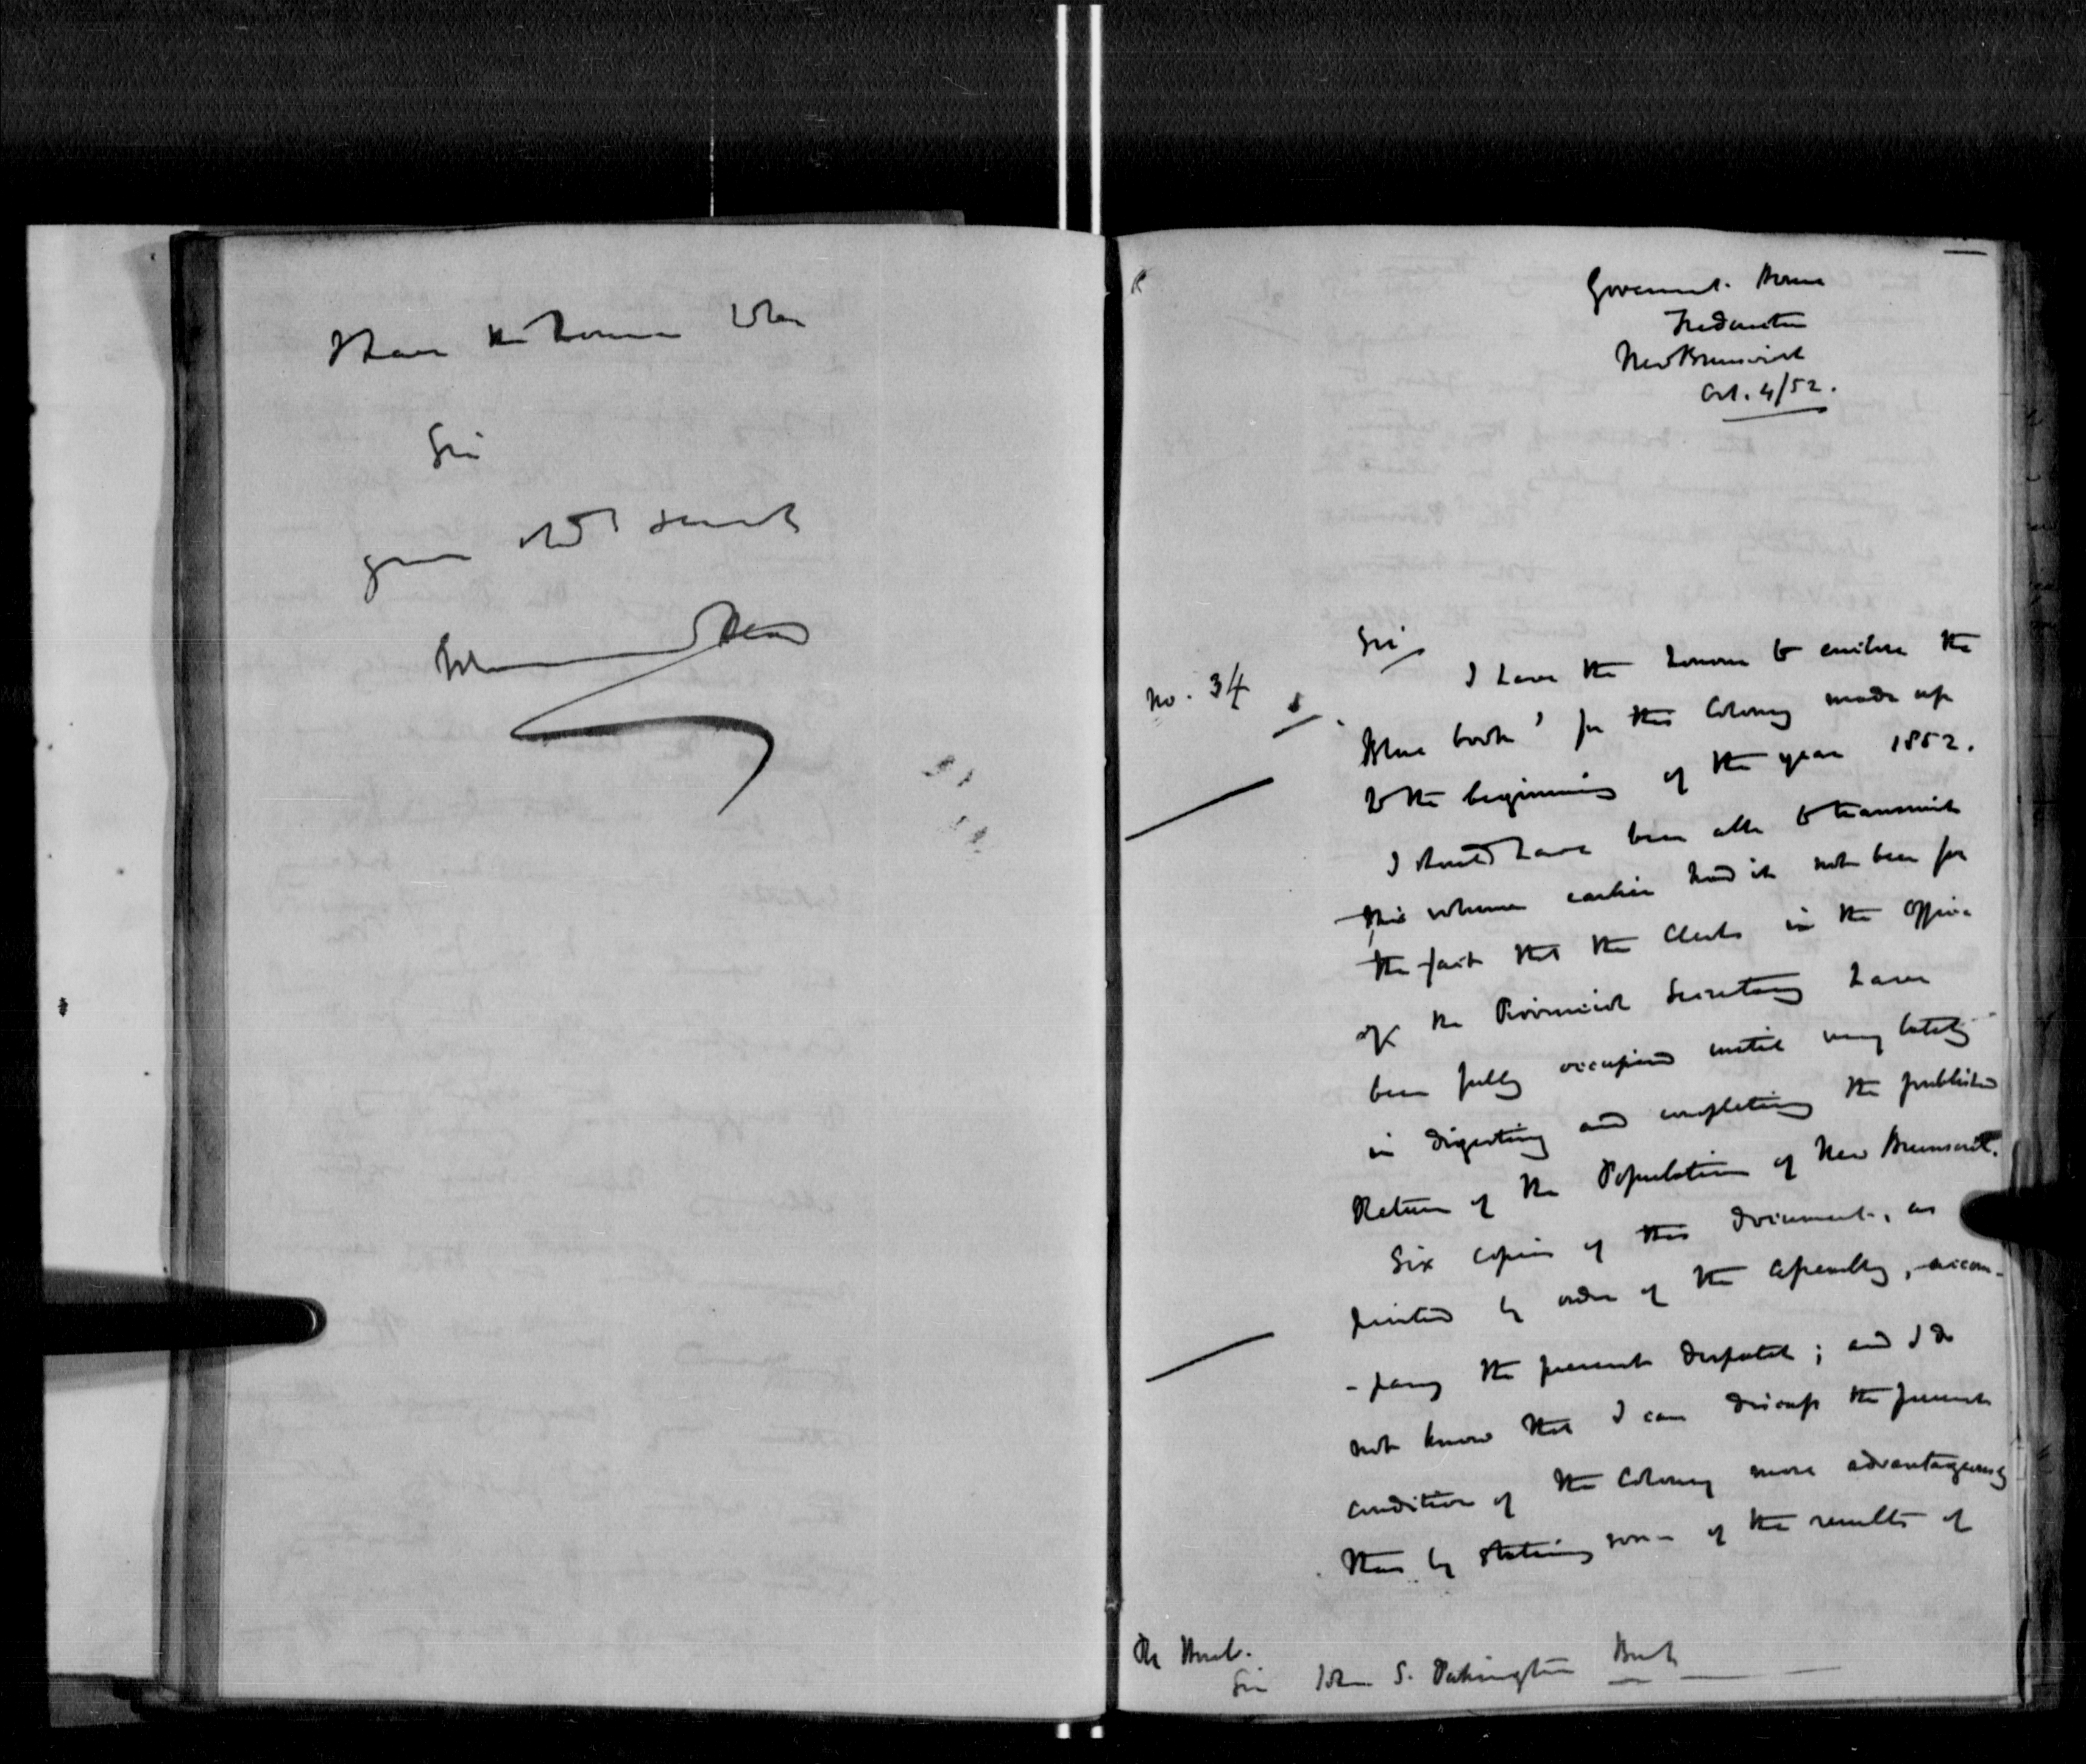 I have the honour to be
Sir
your obt servt
Government House
Fredericton
New Brunswick
Oct. 4/52.
Sir
No. 34
I have the honour to enclose the
'Blue book' for this Colony made up
to the beginning of the year 1852.
I should have been able to transmit
this volume earlier had it not been for
the fact that the Clerks in the Office
of the Provincial Secretary have
been fully occupied until very lately
in digesting and completing the published
Return of the Population of New Brunswick.
Six copies of this document, as
printed by order of the Assembly, accom-
-pany the present despatch; and I do
not know that I can discuss the present
condition of the Colony more advantageously
than by stating some of the results of
The Honble.
Sir John S. Pakington Bart